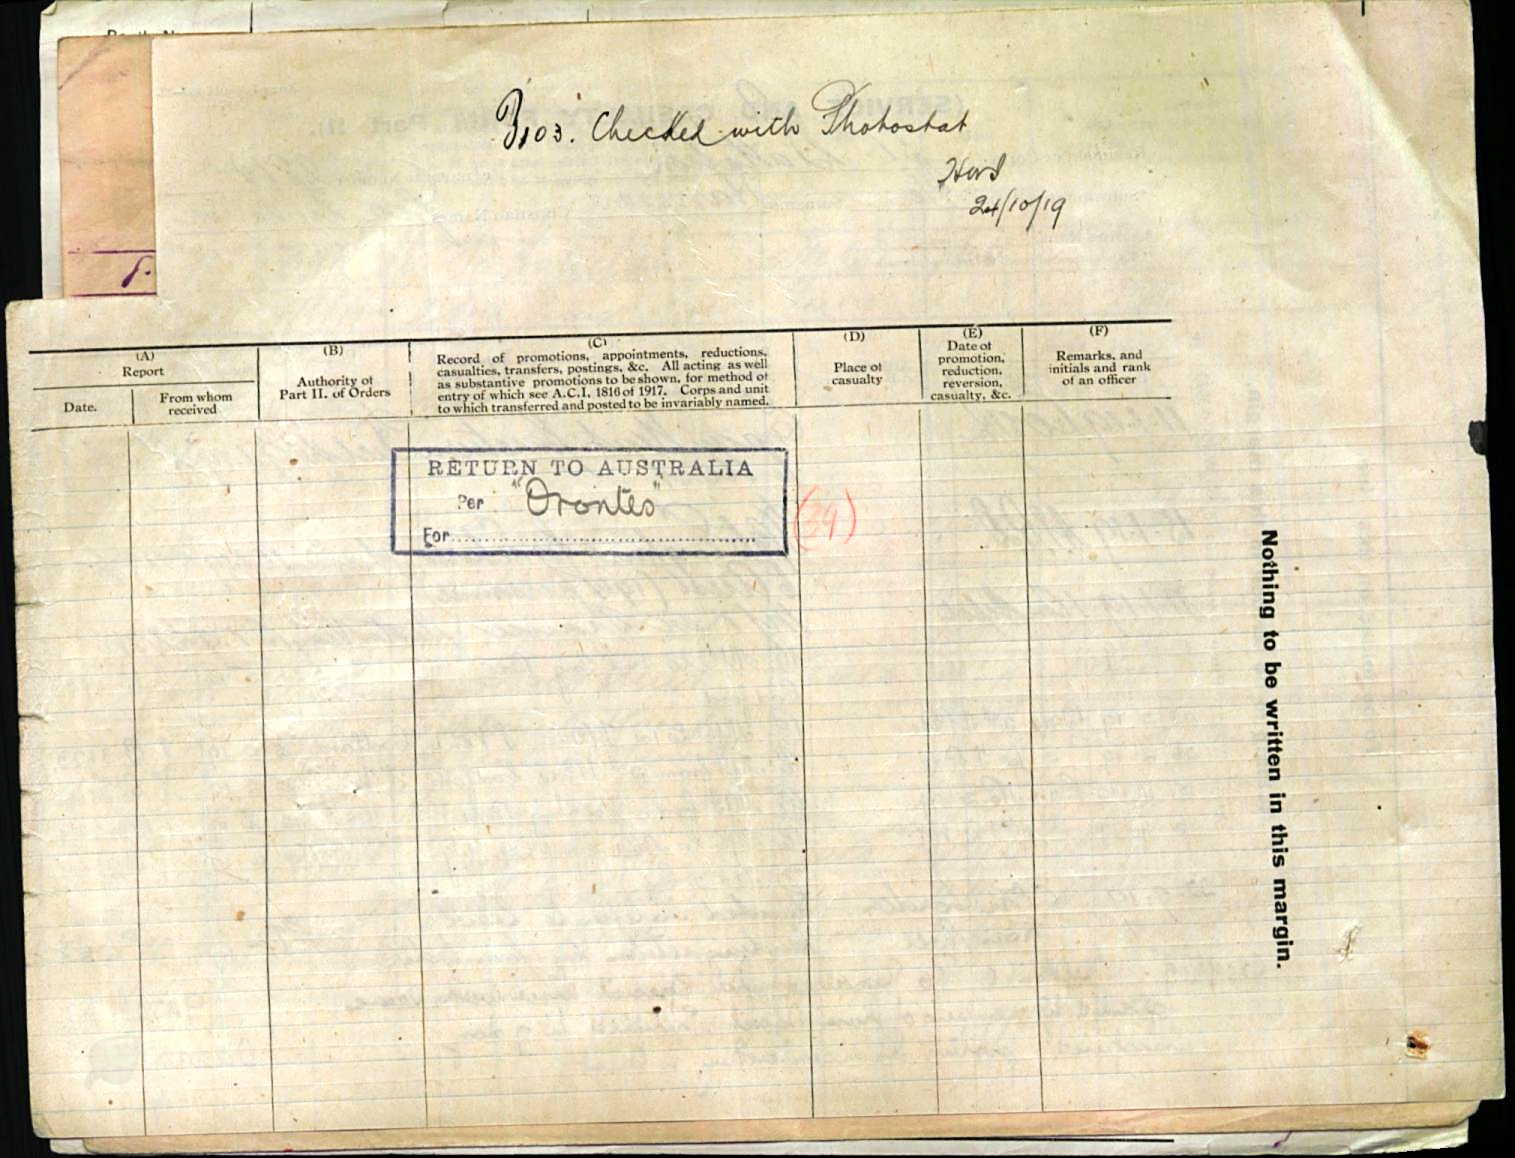 B103. Checked with Photostat
24/10/19
(A)
Report
Date.
From whom
received
(B)
Authority of
Part II. of Orders
(C)
Record of promotions, appointments, reductions,
casualties, transfers, postings, &c. All acting as well
as substantive promotions to be shown, for method of
entry of which see A.C.I. 1816 of 1917. Corps and unit
to which transferred and posted to be invariably named.
(D)
Place of
casualty
(E)
Date of
promotion,
reduction,
reversion,
casualty, &c.
(F)
Remarks, and
initials and rank
of an officer
RETURN TO AUSTRALIA
Per "Orontes"
For
(34)
Nothing to be written in this margin.